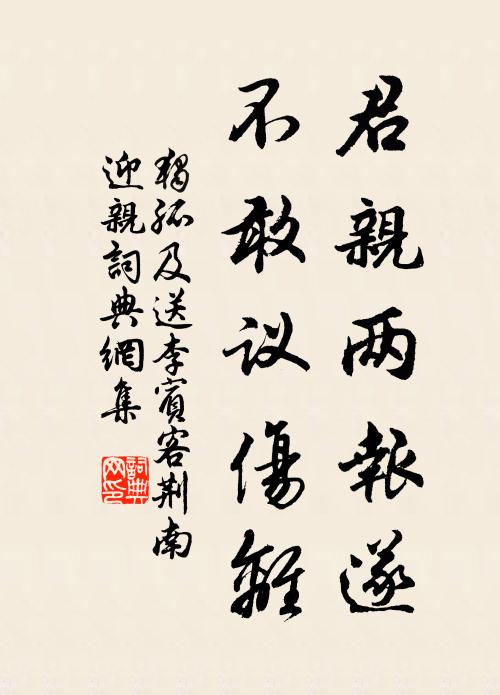 君親两報遂
不敢议傷離
獨孤及送李賓客荆南
迎親詞典網集
詞典
网印